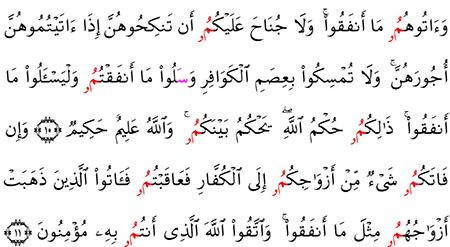 وَءَاتُوهُمُۥ مَا أَنفَقُواْۚ وَلَا جُنَاحَ عَلَيْكُمُۥ أَن تَنكِحُوهُنَّ إِذَا ءَاتَيْتُمُوهُنَّ
أُجُورَهُنَّۚ وَلَا تُمْسِكُواْ بِعِصَمِ ٱلْكَوَافِرِ وَسَلُواْ مَا أَنفَقْتُمُۥ وَلْيَسْـَٔلُواْ مَا
أَنفَقُواْۚ ذَٰلِكُمُۥ حُكْمُ ٱللَّهِۖ يَحْكُمُ بَيْنَكُمُۥۚ وَٱللَّهُ عَلِيمٌ حَكِيمٌ ﴿١٠﴾ وَإِن
فَاتَكُمُۥ شَىْءٌ مِّنْ أَزْوَٰجِكُمُۥ إِلَى ٱلْكُفَّارِ فَعَاقَبْتُمُۥ فَـَٔاتُواْ ٱلَّذِينَ ذَهَبَتْ
أَزْوَٰجُهُمُۥ مِثْلَ مَا أَنفَقُواْۚ وَٱتَّقُواْ ٱللَّهَ ٱلَّذِى أَنتُمُۥ بِهِۦ مُؤْمِنُونَ ﴿١١﴾